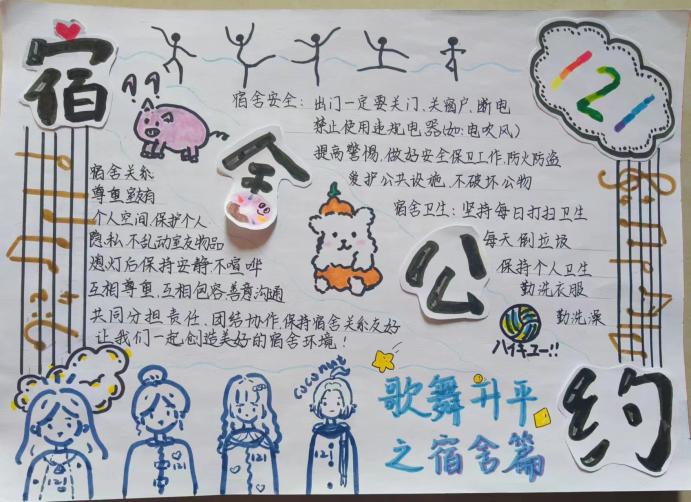 宿
舍
公
约
121
宿舍安全：出门一定要关门、关窗户、断电
禁止使用违规电器(如:电吹风)
提高警惕，做好安全保卫工作，防火防盗
爱护公共设施，不破坏公物
宿舍卫生：坚持每日打扫卫生
每天倒垃圾
保持个人卫生
勤洗衣服
勤洗澡
宿舍关系
尊重室友
个人空间，保护个人
隐私，不乱动室友物品
熄灯后保持安静，不喧哗
互相尊重，互相包容，善意沟通
共同分担责任、团结协作，保持宿舍关系友好
让我们一起创造美好的宿舍环境！
ハイキュー!!
coconut
歌舞升平
之宿舍篇
121
121
121
121